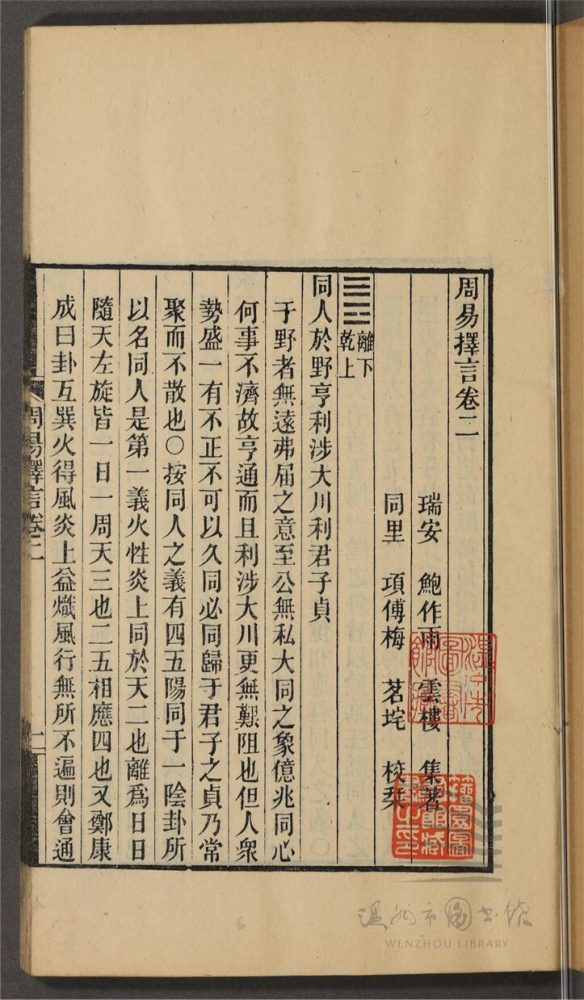 周易擇言卷二
瑞安 鮑作雨 雲樓 集著
同里 項傅梅 茗垞 校栞
離下
乾上
同人於野亨利涉大川利君子貞
于野者無遠弗届之意至公無私大同之象億兆同心
何事不濟故亨通而且利涉大川更無艱阻也但人衆
勢盛一有不正不可以久同必同歸于君子之貞乃常
聚而不散也○按同人之義有四五陽同于一陰卦所
以名同人是第一義火性炎上同於天二也離爲日日
隨天左旋皆一日一周天三也二五相應四也又鄭康
成曰卦互巽火得風炎上益熾風行無所不遍則會通
周易擇言卷二
溫州市圖書館
WENZHOU LIBRARY